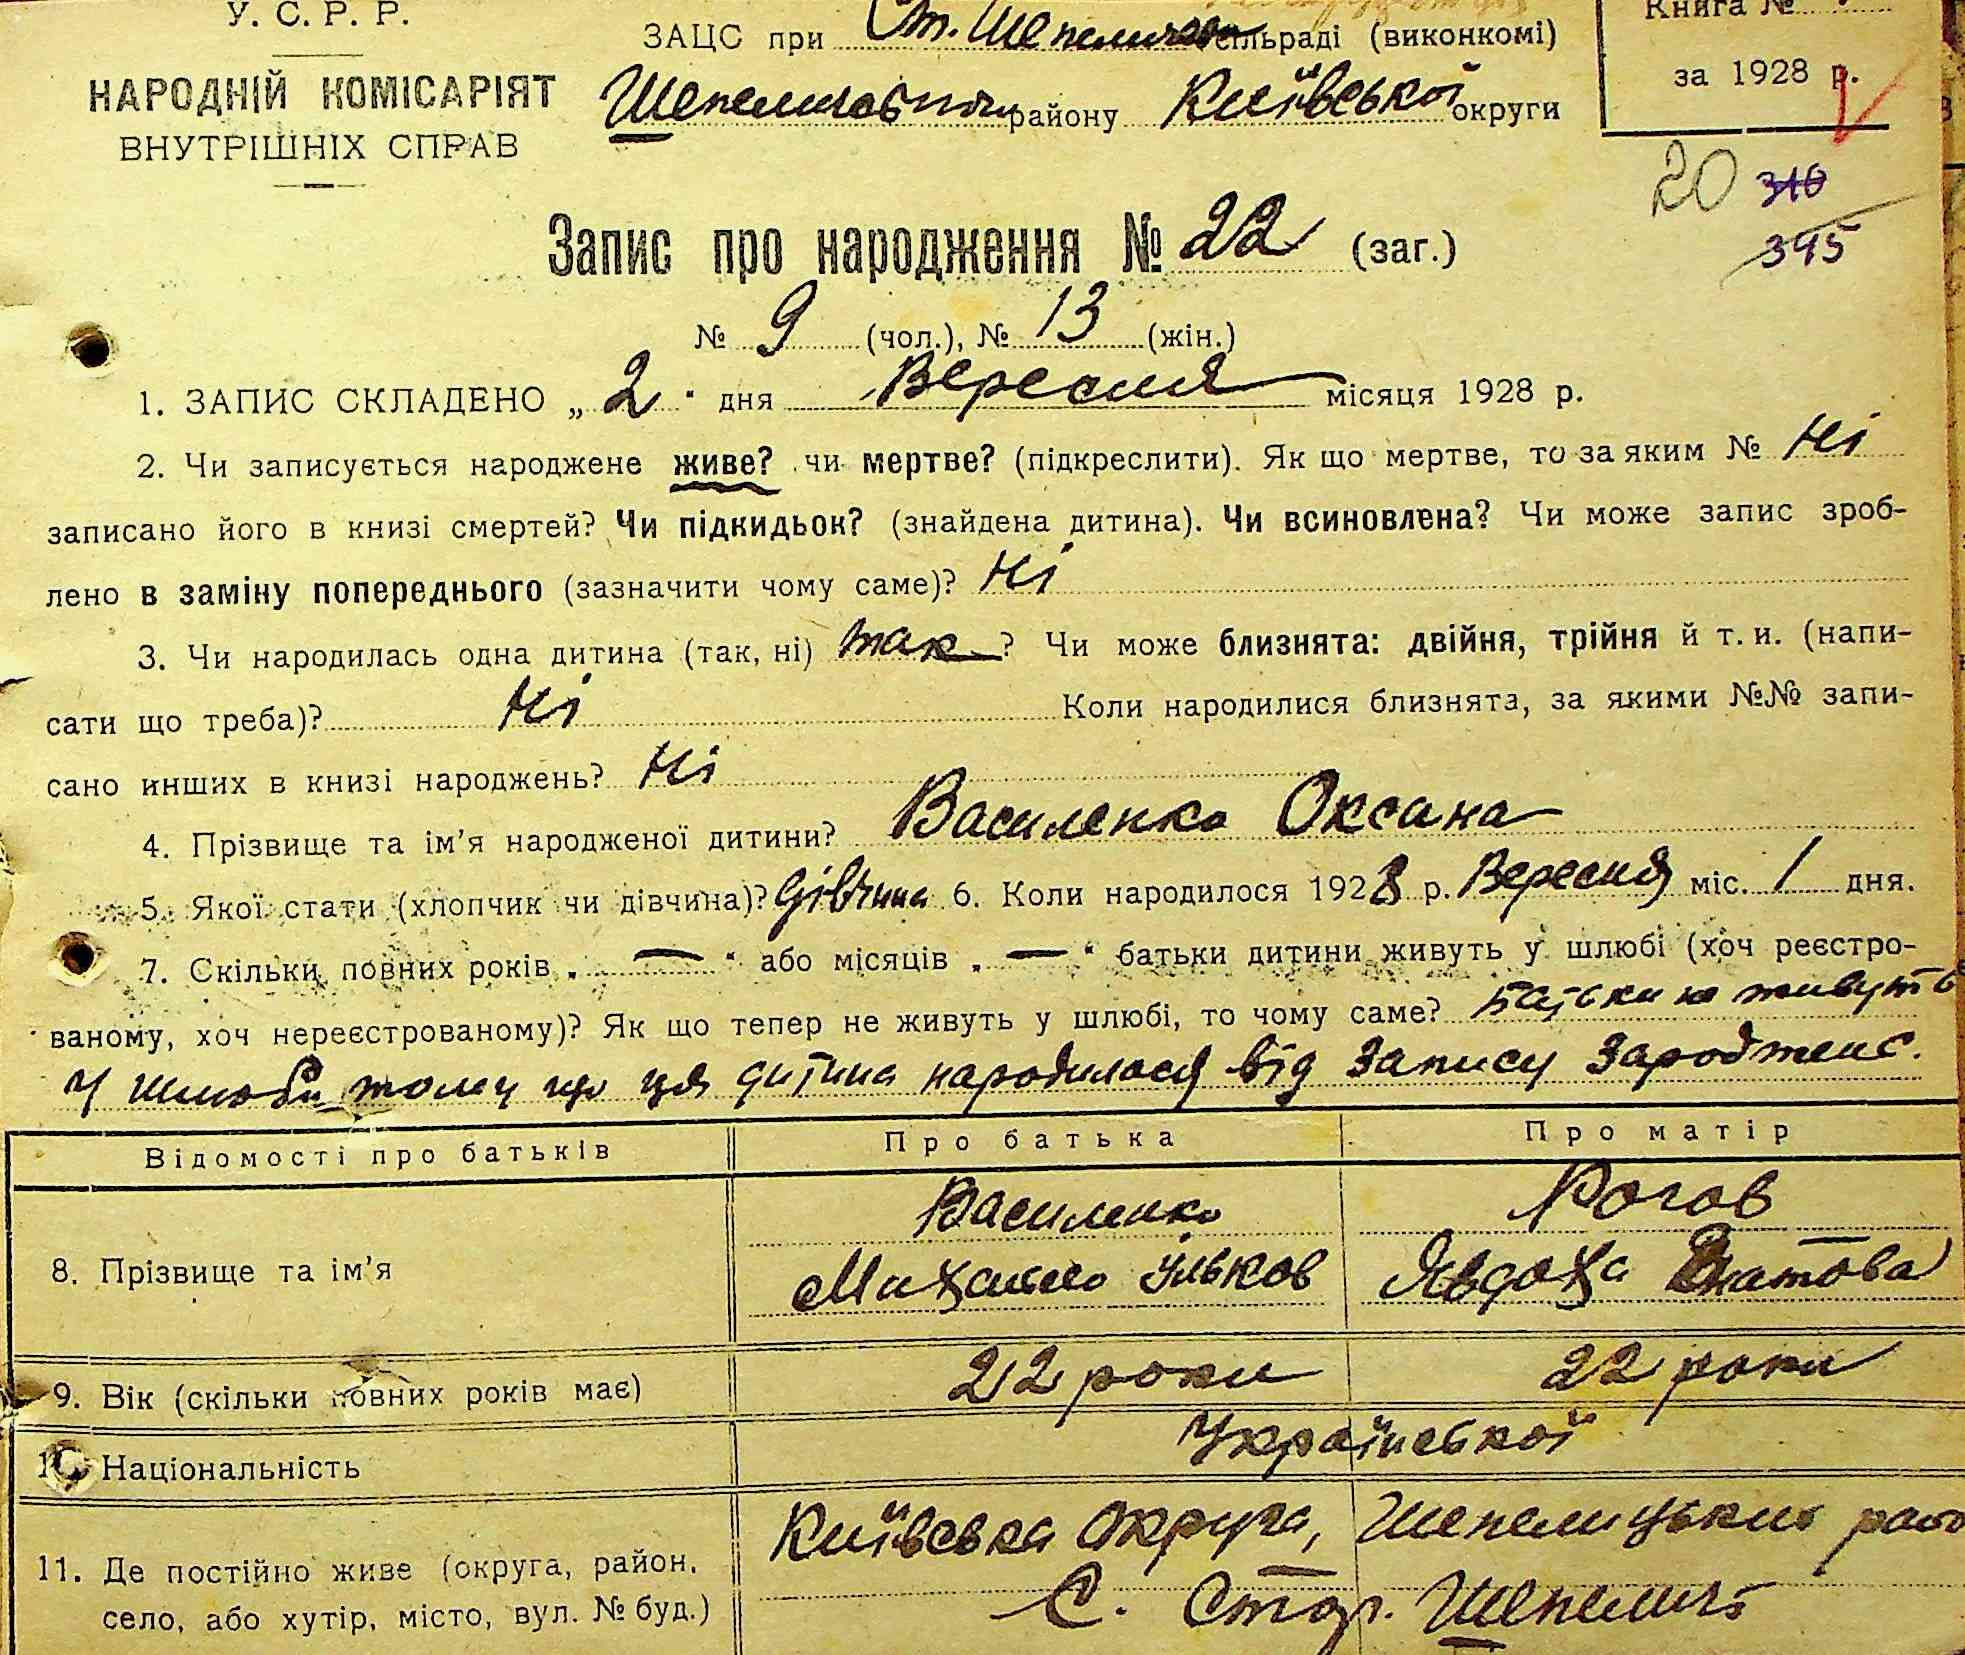 У. С. Р. Р.
НАРОДНІЙ КОМІСАРІЯТ
ВНУТРІШНІХ СПРАВ
ЗАЦС при Ст. Шепелич сільраді (виконкомі)
району Київської округи
Книга №
за 1928 р.
20 310
395
Запис про народження № 22 (заг.)
№ 9 (чол.), № 13 (жін.)
1. ЗАПИС СКЛАДЕНО „ 2 " дня Вересня місяця 1928 р.
2. Чи записується народжене живе? чи мертве? (підкреслити). Як що мертве, то за яким № Ні
записано його в книзі смертей? Чи підкидьок? (знайдена дитина). Чи всиновлена? Чи може запис зроб-
лено в заміну попереднього (зазначити чому саме)? Ні
3. Чи народилась одна дитина (так, ні) так ? Чи може близнята: двійня, трійня й т. и. (напи-
сати що треба)? Ні Коли народилися близнята, за якими №№ запи-
сано инших в книзі народжень? Ні
4. Прізвище та ім’я народженої дитини? Василенко Оксана
5. Якої стати (хлопчик чи дівчина)? Дівчина 6. Коли народилося 1928 р. Вересня міс. 1 дня.
7. Скільки повних років „ — " або місяців „ — " батьки дитини живуть у шлюбі (хоч реєстро-
ваному, хоч нереєстрованому)? Як що тепер не живуть у шлюбі, то чому саме? Батьки не живуть
у шлюби тому що ця дитина народилася від Запису
Відомості про батьків Про батька Про матір
8. Прізвище та ім’я Василенко Рогов
Михайло Ульков Явдоха
9. Вік (скільки повних років має) 22 роки 22 роки
10. Національність Української
11. Де постійно живе (округа, район, Київська Округа, Шепелицький
село, або хутір, місто, вул. № буд.) С. Стар. Шепеличі